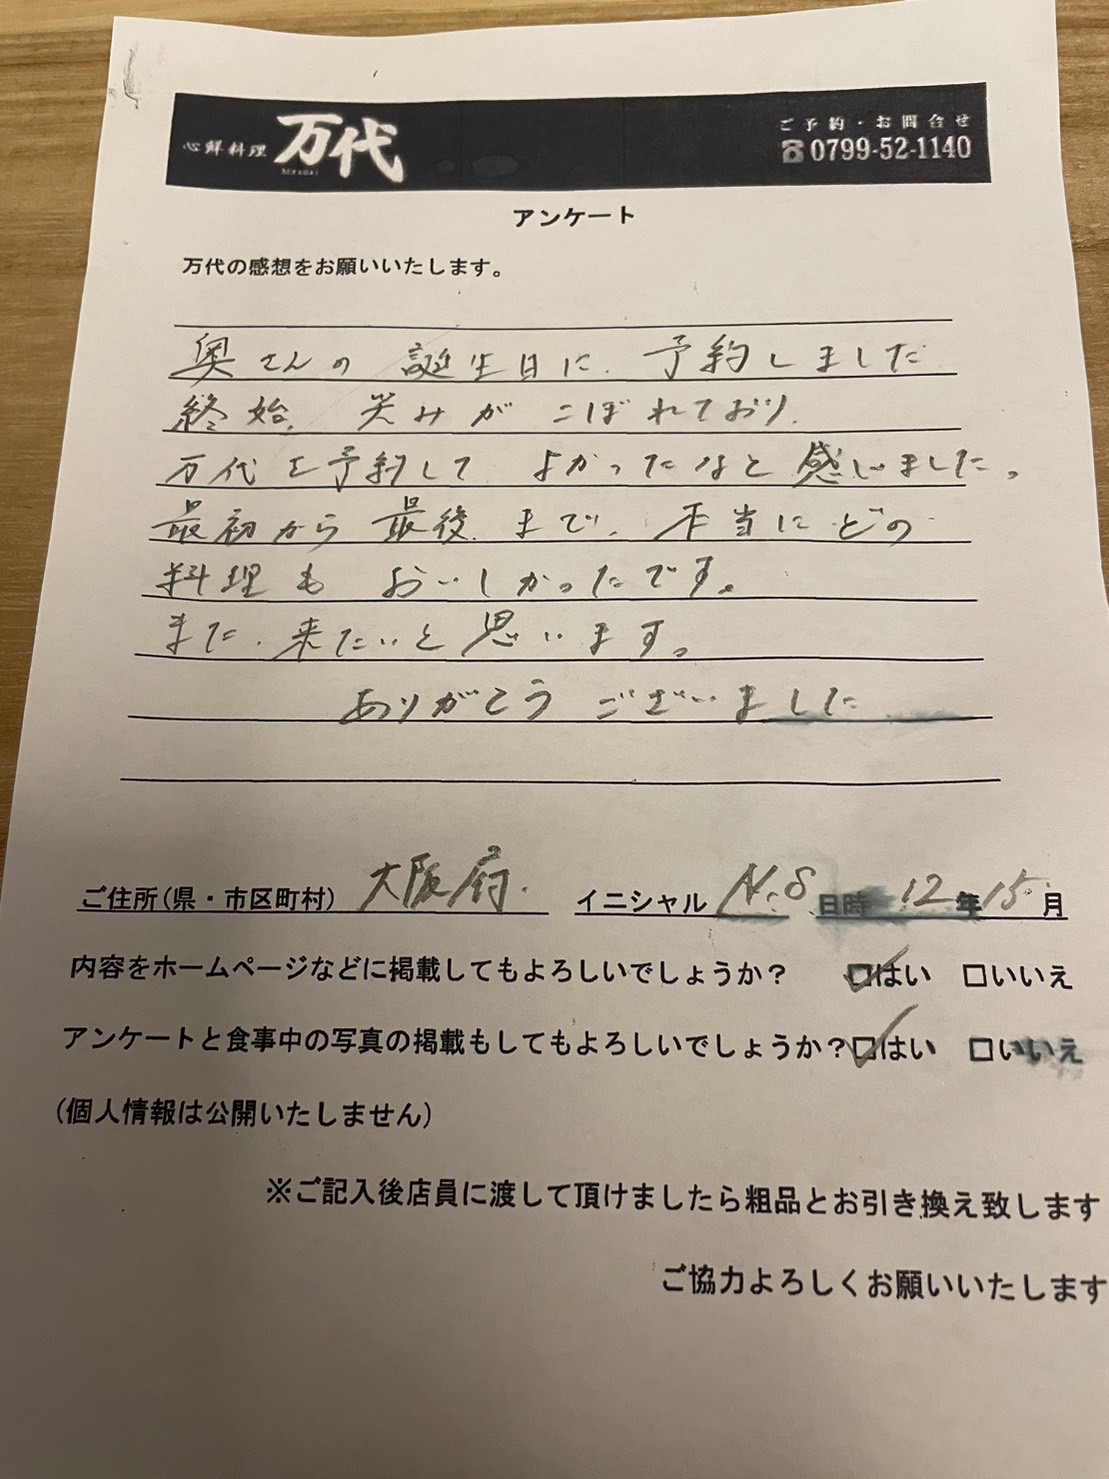 心鮮料理 万代
Mandai
ご予約・お問合せ
☎0799-52-1140
アンケート
万代の感想をお願いいたします。
奥さんの 誕生日に、予約しました
終始、笑みが こぼれており、
万代を予約して よかったなと 感じました。
最初から 最後まで、本当に どの
料理も おいしかったです。
また、来たいと思います。
ありがとう ございました
ご住所(県・市区町村) 大阪府. イニシャル N.S 日時 12年15月
内容をホームページなどに掲載してもよろしいでしょうか？ ☑はい □いいえ
アンケートと食事中の写真の掲載もしてもよろしいでしょうか？☑はい □いいえ
(個人情報は公開いたしません)
※ご記入後店員に渡して頂けましたら粗品とお引き換え致します
ご協力よろしくお願いいたします